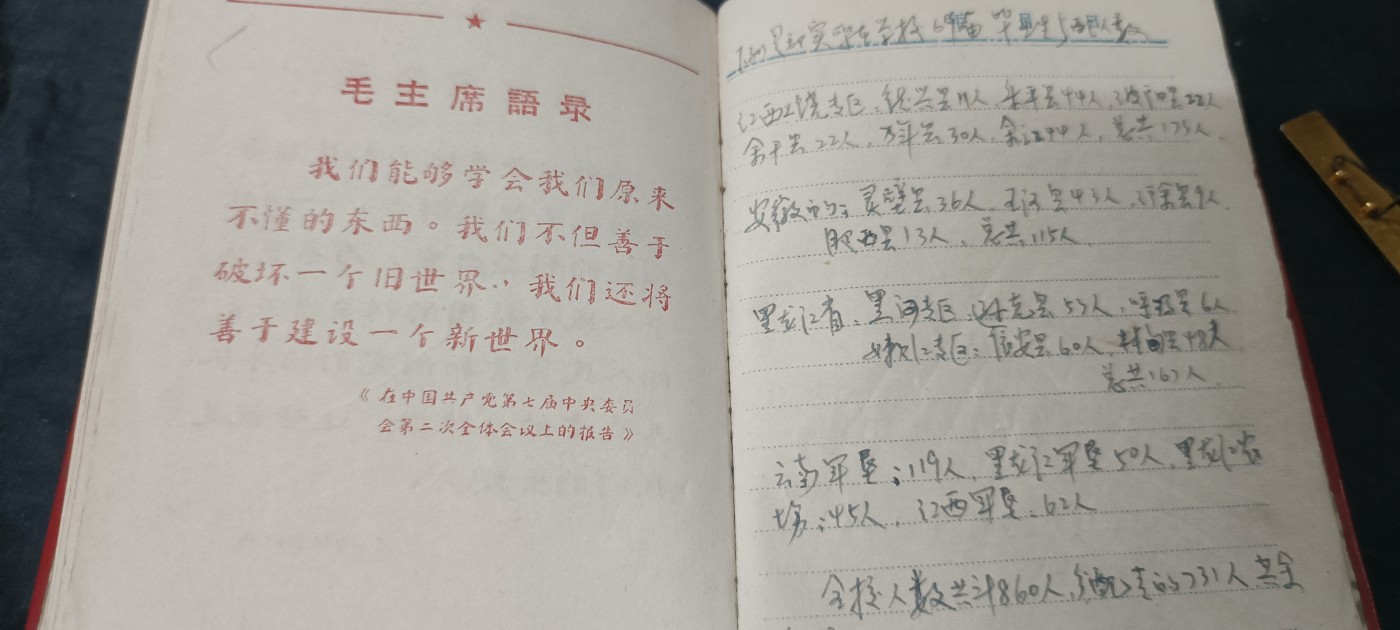 毛主席語录
我们能够学会我们原来
不懂的东西。我们不但善于
破坏一个旧世界，我们还将
善于建设一个新世界。
《在中国共产党第七届中央委员
会第二次全体会议上的报告》
学校69届毕业生分配人数
江西上饶专区：11人，乐平县44人，22人
余干县22人，万年县30人，余江44人，总共173人
安徽的：灵壁县36人，五河县43人，9人
肥西县13人，总共115人
黑龙江省：黑河专区：逊克县53人，呼玛县6人
嫩江专区：60人，48人
总共167人
云南军垦：119人，黑龙江军垦50人，黑龙江农
场：45人，江西军垦：62人
全校人数共计860人，分配走的731人